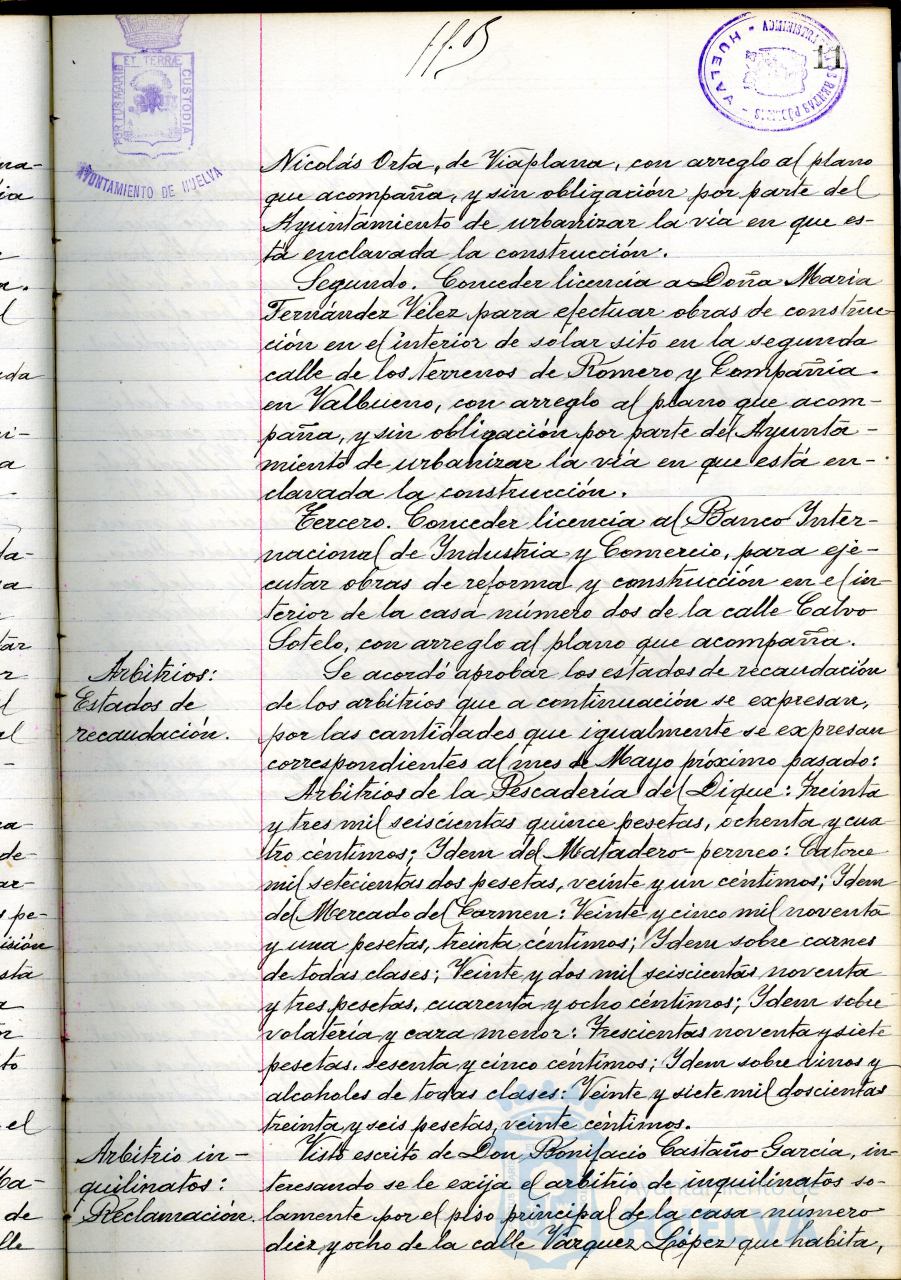 11
PORTUS MARIS ET TERRÆ CUSTODIA
AYUNTAMIENTO DE HUELVA
HUELVA
Nicolás Orta, de Viaplana, con arreglo al plano
que acompaña, y sin obligación por parte del
Ayuntamiento de urbanizar la vía en que es-
tá enclavada la construcción.
Segundo. Conceder licencia a Doña María
Fernández Vélez para efectuar obras de construc-
ción en el interior de solar sito en la segunda
calle de los terrenos de Romero y Compañía
en Valbueno, con arreglo al plano que acom-
paña, y sin obligación por parte del Ayunta-
miento de urbanizar la vía en que está en-
clavada la construcción.
Tercero. Conceder licencia al Banco Inter-
nacional de Industria y Comercio, para eje-
cutar obras de reforma y construcción en el in-
terior de la casa número dos de la calle Calvo
Sotelo, con arreglo al plano que acompaña.
Arbitrios:
Estados de
recaudación.
Se acordó aprobar los estados de recaudación
de los arbitrios que a continuación se expresan,
por las cantidades que igualmente se expresan
correspondientes al mes de Mayo próximo pasado:
Arbitrios de la Pescadería del Dique: Treinta
y tres mil seiscientas quince pesetas, ochenta y cua
tro céntimos; Idem del Matadero-perneo: Catorce
mil setecientas dos pesetas, veinte y un céntimos; Idem
del Mercado del Carmen: Veinte y cinco mil noventa
y una pesetas, treinta céntimos; Idem sobre carnes
de todas clases; Veinte y dos mil seiscientas noventa
y tres pesetas, cuarenta y ocho céntimos; Idem sobre
volatería y caza menor: Trescientas noventa y siete
pesetas, sesenta y cinco céntimos; Idem sobre vinos y
alcoholes de todas clases: Veinte y siete mil doscientas
treinta y seis pesetas, veinte céntimos.
Arbitrio in-
quilinatos:
Reclamación.
Visto escrito de Don Bonifacio Castaño García, in-
teresando se le exija el arbitrio de inquilinatos so-
lamente por el piso principal de la casa número
diez y ocho de la calle Vázquez López que habita,
Ayuntamiento de
HUELVA